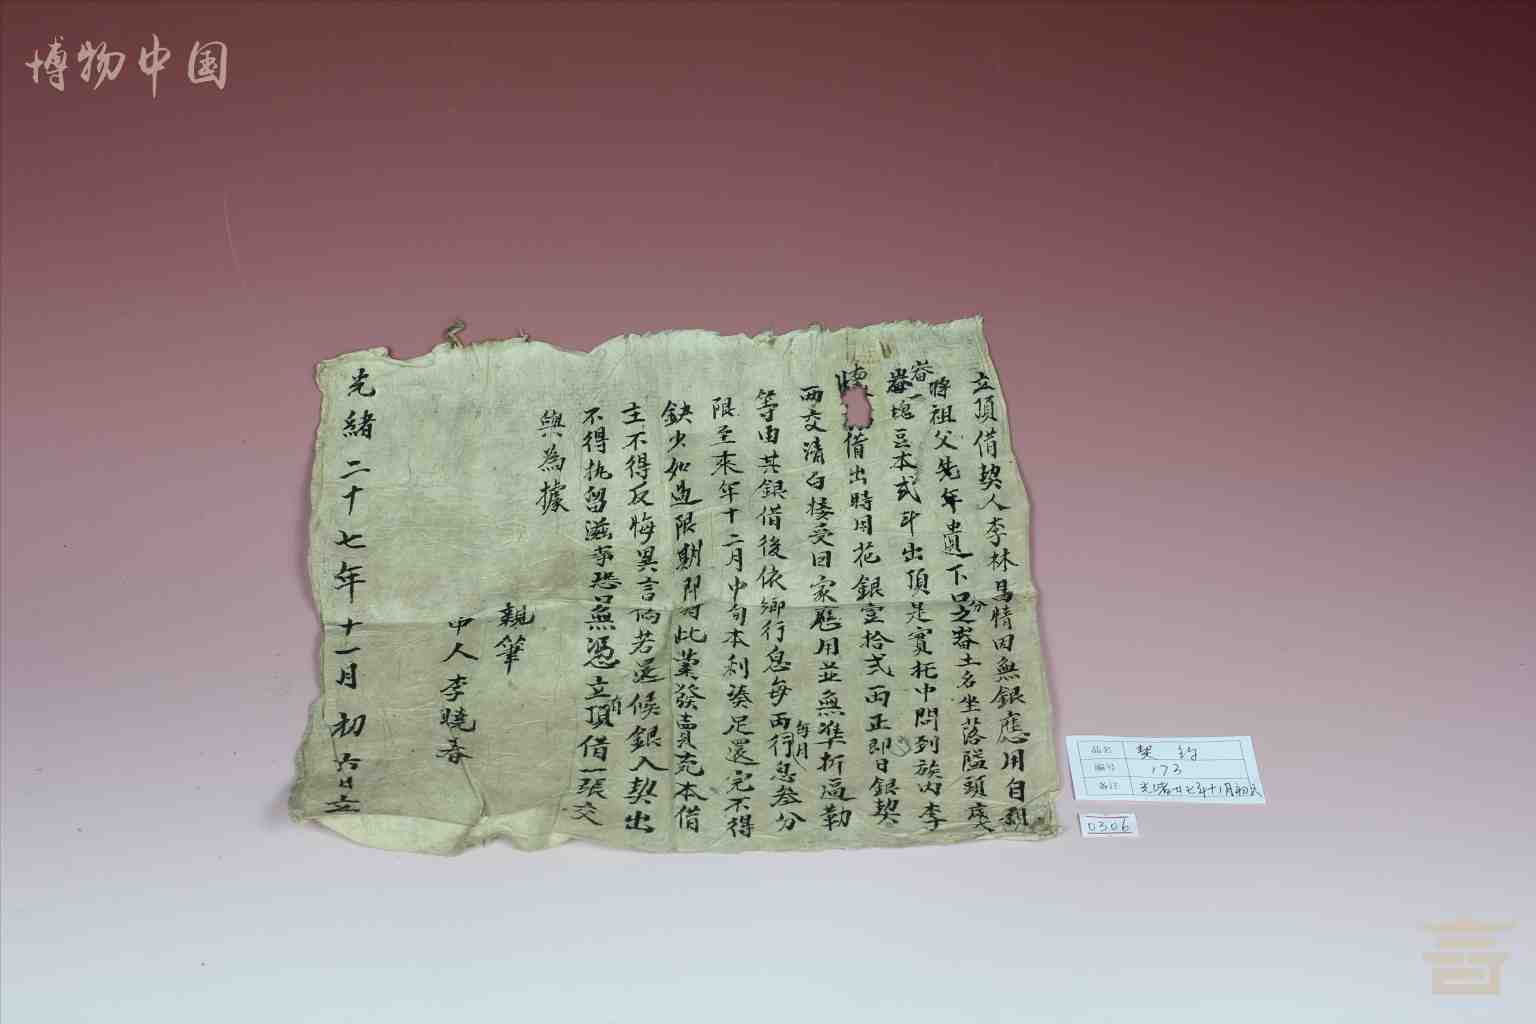 博物中国
立頂借契人李林昌情因無銀應用自
將祖父先年遺下口分之畬土名坐落隘頭處
畬一塊豆本弍斗出頂是實托中問到族內李
借出時用花銀壹拾弍両正即日銀契
両交清白棲受回家應用並無準折逼勒
等由其銀借後依鄉行息每両每月行息叁分
限至來年十二月中旬本利湊足還完不得
缺少如過限期即將此業發賣充本借
主不得反悔異言倘若還候銀入契出
不得執留滋事恐口無憑立頂借一張交
與為據
親筆
中人李曉春
光緒二十七年十一月初六日立
品名 契約
編号 173
备注 光绪廿七年十一月初六
0306